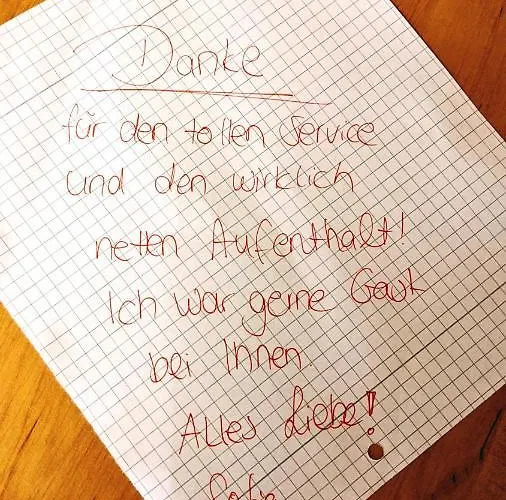 Danke
für den tollen Service
und den wirklich
netten Aufenthalt!
Ich war gerne Gast
bei Ihnen.
Alles Liebe!